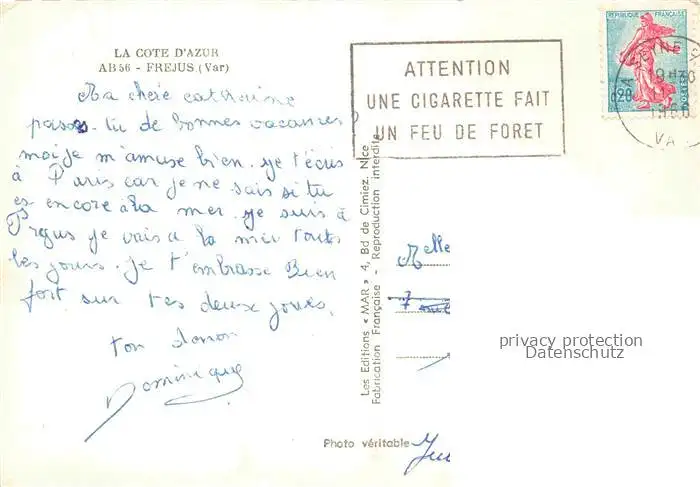 LA COTE D'AZUR
AB 56 - FREJUS (Var)
Ma chère catherine
passes-tu de bonnes vacances ?
moi je m'amuse bien. je t'écris
à Paris car je ne sais si tu
es encore à la mer. je suis à
Frejus je vais a la mer toutes
les jours. je t'embrasse Bien
fort sur tes deux joues.
Dominique
ATTENTION
UNE CIGARETTE FAIT
UN FEU DE FORET
REPUBLIQUE FRANÇAISE
0,20
POSTES
VAR
Les Editions « MAR » 4, Bd de Cimiez, Nice
Fabrication Française - Reproduction interdite
Melle
7
privacy protection
Datenschutz
Photo véritable